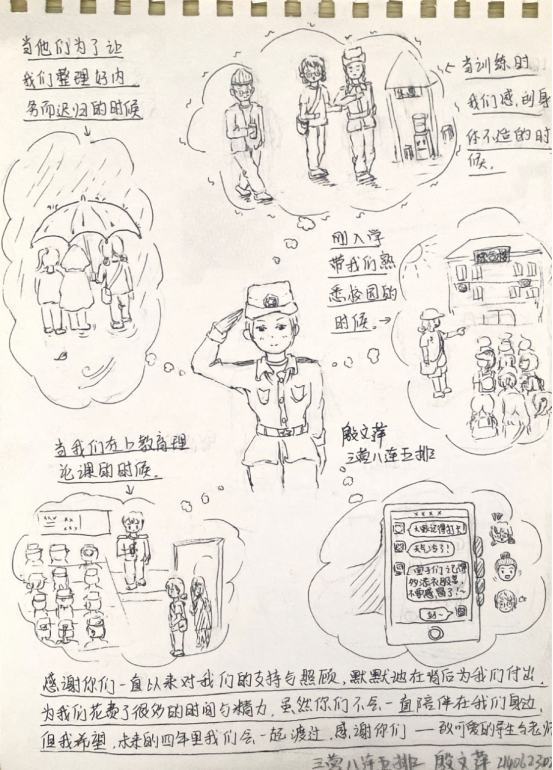 当他们为了让
我们整理好内
务而迟归的时候
当训练时
我们感到身
体不适的时
候。
刚入学
带我们熟
悉校园的
时候。
殷文萍
三营八连五排
当我们在上教育理
论课的时候。
大家记得打卡!
天气冷了!
孩子们记得
多添衣服
不要感冒了!~
好~
感谢你们一直以来对我们的支持与照顾,默默地在背后为我们付出,
为我们花费了很多的时间与精力,虽然你们不会一直陪伴在我们身边,
但我希望,未来的四年里我们会一起渡过,感谢你们——致可爱的导生与老师
三营八连五排 殷文萍